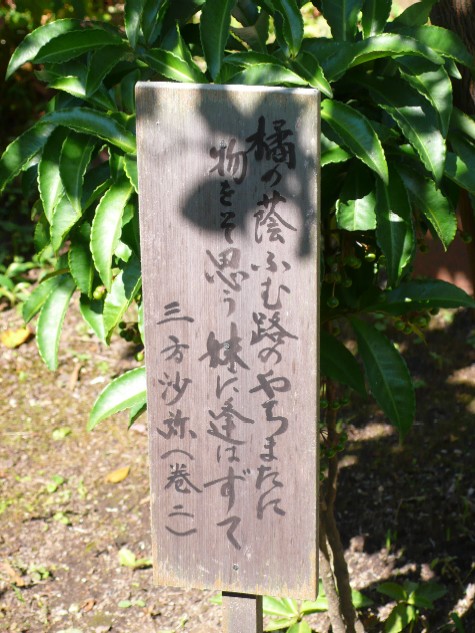 橘の蔭ふむ路のやちまたに
物をそ思う妹に逢はずて
三方沙弥(巻二)